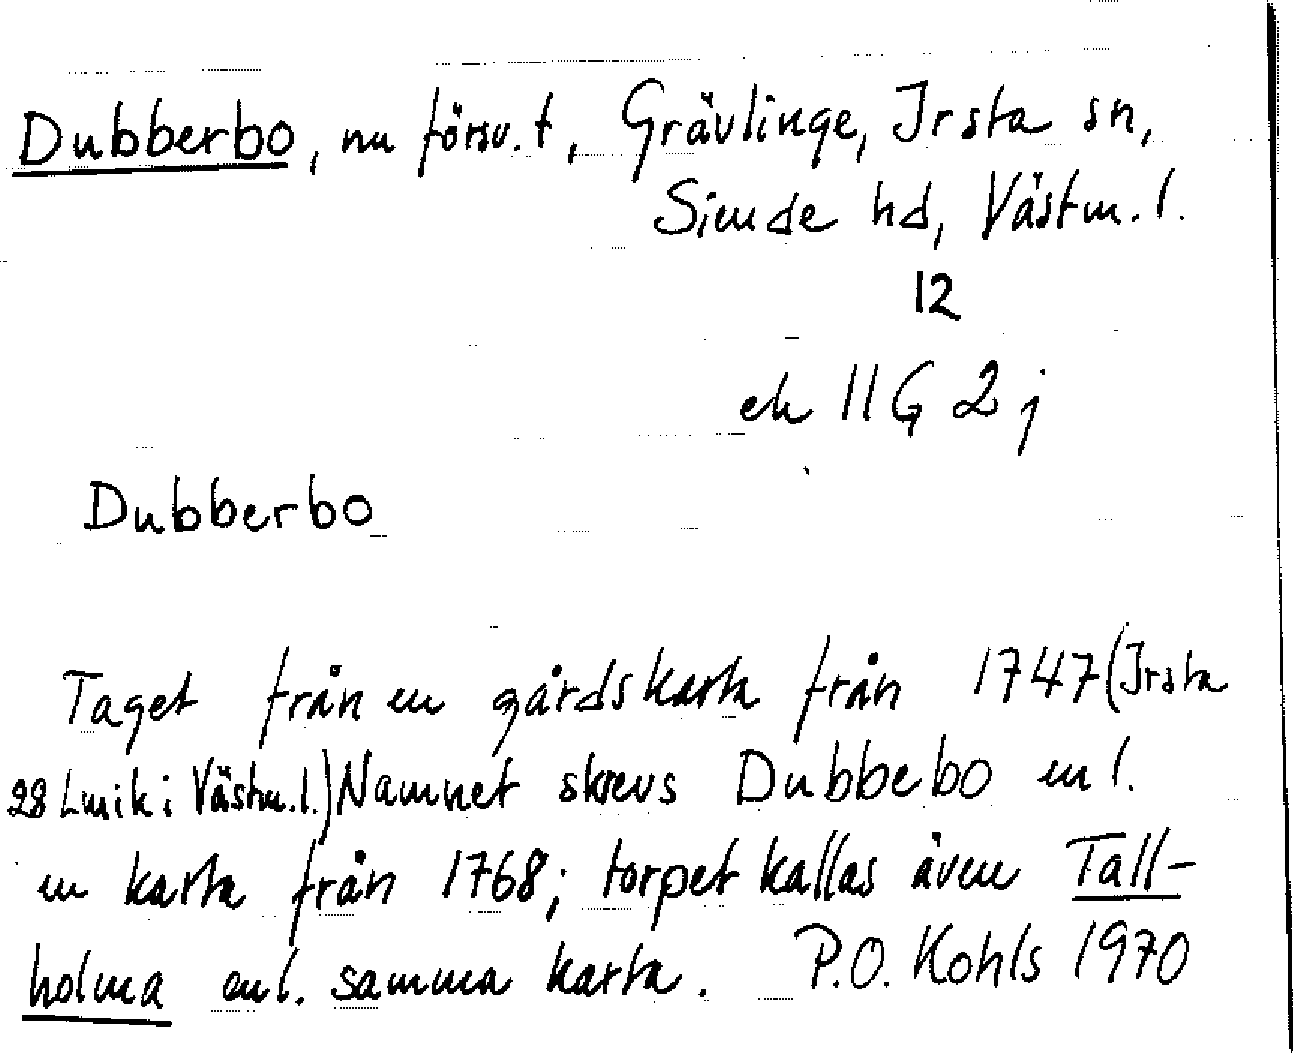 Dubberbo, nu försv. t, Grävlinge, Irsta sn,
Siende hd, Västm. l.
12
ek 11 G 2 j
Dubberbo
Taget från en gårdskarta från 1747 (Irsta
28 Lmik i Västm. l.) Namnet skrevs Dubbebo enl.
en karta från 1768; torpet kallas även Tall-
holma enl. samma karta. P.O. Kohls 1970